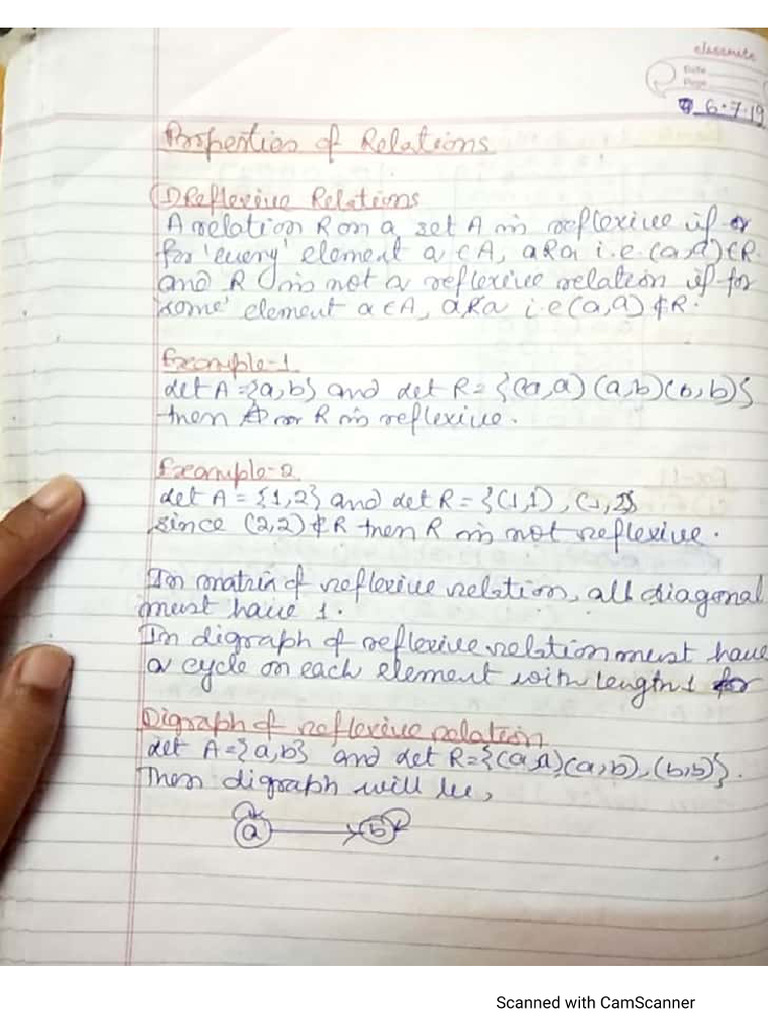 classmate
Date
Page
6.7.19
Properties of Relations
① Reflexive Relations
A relation R on a set A is reflexive if
for 'every' element a ∈ A, aRa i.e. (a,a) ∈ R.
and R is not a reflexive relation if for
some element a ∈ A, aRa i.e (a,a) ∉ R.
Example-1
let A = {a,b} and let R = {(a,a) (a,b) (b,b)}
then R is reflexive.
Example-2
let A = {1,2} and let R = {(1,1), (1,2)}
since (2,2) ∉ R then R is not reflexive.
In matrix of reflexive relation, all diagonal
must have 1.
In digraph of reflexive relation must have
a cycle on each element with length 1
Digraph of reflexive relation
let A = {a,b} and let R = {(a,a) (a,b), (b,b)}.
Then digraph will be,
a b
Scanned with CamScanner